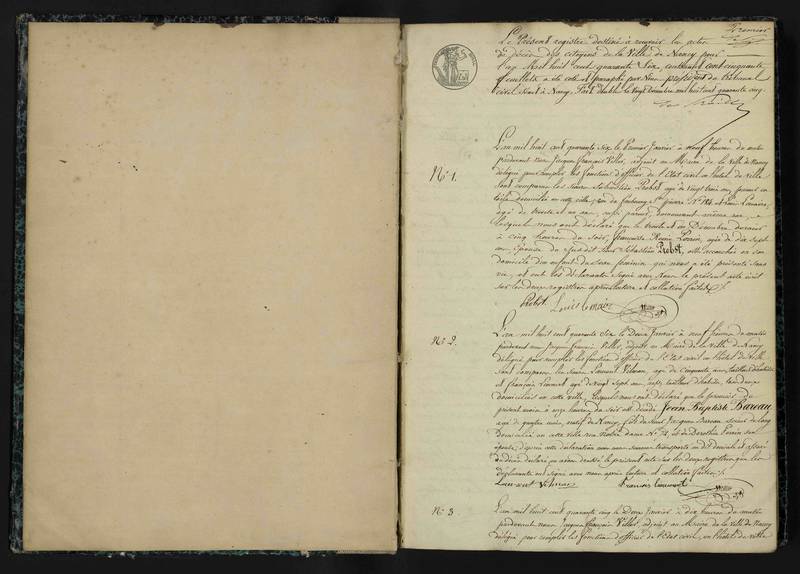 Premier
Le Présent registre destiné à recevoir les actes
de décès des citoyens de la Ville de Nancy pour
l'an Mil huit cent quarante Six, contenant cent cinquante
feuillets a été coté et paraphé par Nous président du tribunal
civil séant à Nancy. Fait double le vingt Décembre mil huit cent quarante cinq.
N° 1.
L'an mil huit cent quarante six le Premier Janvier à neuf heures du matin
pardevant nous Jacques François Villers, adjoint au Maire de la Ville de Nancy
délégué pour remplir les fonctions d'officier de l'Etat civil en l'hôtel de Ville
sont comparus les sieurs Sébastien Probst, agé de vingt trois ans,
domicilié en cette ville, rue du faubourg St pierre N° et Louis Lemaire,
agé de trente et un ans, même rue,
lesquels nous ont déclaré que le trente et un Décembre dernier
à cinq heures du soir, agée de dix sept
ans épouse du susdit Sieur Sébastien Probst, est accouchée en son
domicile d'un enfant du sexe féminin qui nous a été présenté sans
vie, et ont les déclarants signé avec Nous le présent acte écrit
sur les deux registres après lecture et collation faites.
Probst. Louis Lemaire
N° 2.
L'an mil huit cent quarante Six le Deux Janvier à neuf heures du matin
pardevant nous Jacques françois Villers, adjoint au Maire de la ville de Nancy
délégué pour remplir les fonctions d'officier de l'Etat civil en l'hôtel de Ville
sont comparus les sieurs Laurent agé de cinquante ans,
et françois agé de vingt sept ans, tailleur d'habits, tous deux
domiciliés en cette ville, lesquels nous ont déclaré que le premier du
présent mois à onze heures du soir est décédé Jean Baptiste Bareau
agé de quatre mois, natif de Nancy, fils du sieur Jacques Bareau
domicilié en cette ville rue Notre dame N° et de Dorothée son
épouse; d'après cette déclaration nous nous sommes transportés au domicile et assuré
du décès déclaré, nous avons rédigé le présent acte sur les deux registres que les
déclarants ont signé avec nous après lecture et collation faites.
Laurent
François
N° 3
L'an mil huit cent quarante cinq le Deux Janvier à dix heures du matin
pardevant nous Jacques françois Villers, adjoint au Maire de la ville de Nancy
délégué pour remplir les fonctions d'officier de l'Etat civil, en l'hôtel de ville